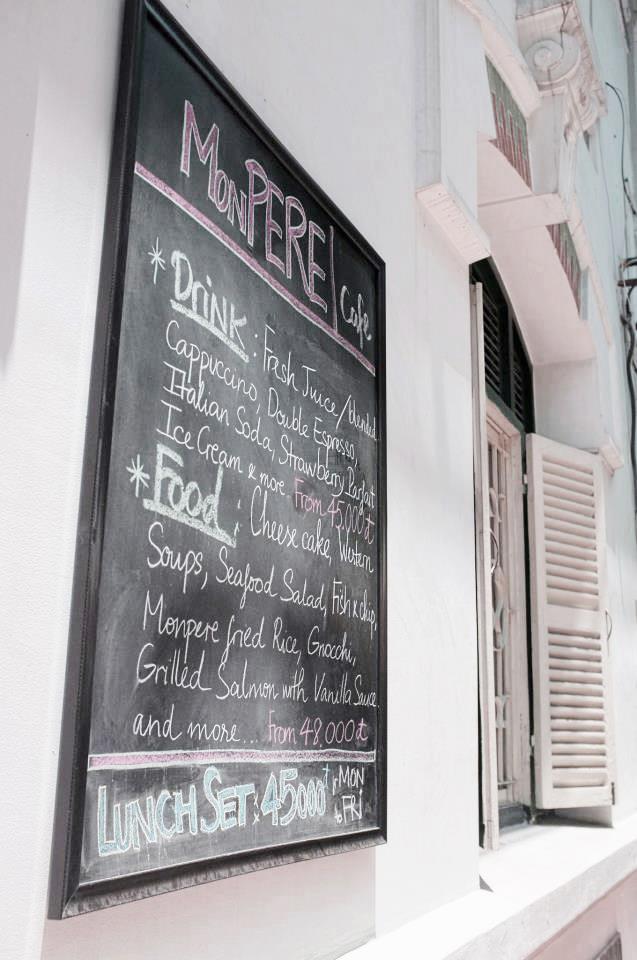 MonPERE | Cafe
* Drink : Fresh Juice/blended
Cappuccino, Double Espresso,
Italian Soda, Strawberry Parfait
Ice Cream & more From 45,000 đ
* Food : Cheese cake, Western
Soups, Seafood Salad, Fish x chip,
Monpere fried Rice, Gnocchi,
Grilled Salmon with Vanilla Sauce
and more... From 48.000 đ
LUNCH SET x 45000đ MON
to FRI